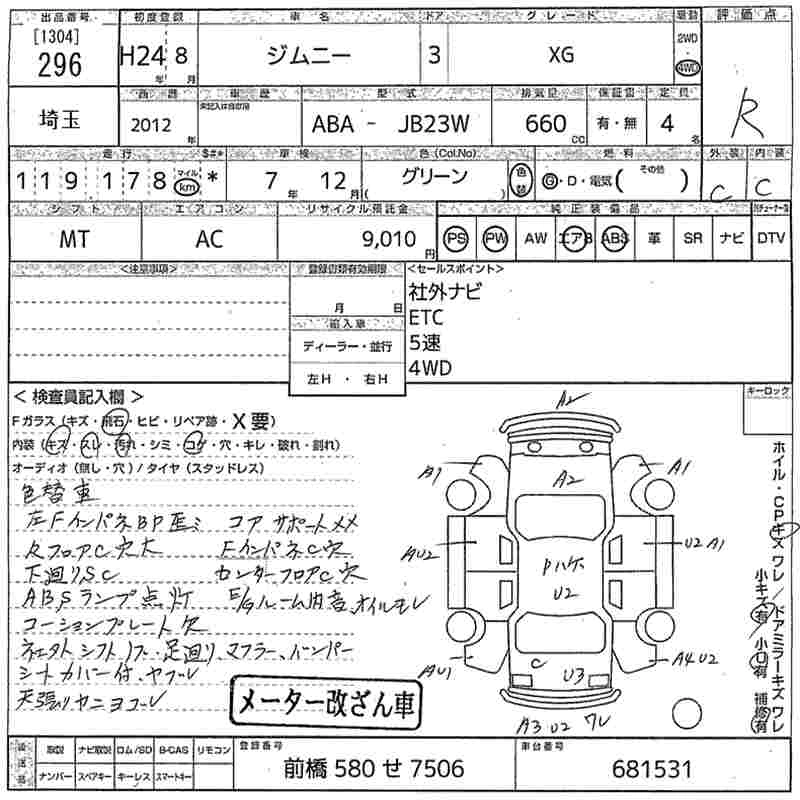 出品番号 初度登録 車名 ドア グレード 駆動 評価点
[1304]
296 H24 年 8 月 ジムニー 3 XG 2WD 4WD
R
西暦 車歴 型式 排気量 保証書 定員
埼玉 2012 年 未記入は自家用 ABA - JB23W 660 CC 有・無 4 名
走行 車検 色(Col.No) 燃料 外装 内装
119,178 マイル km * 7 年 12 月 グリーン ( ) 色替 G・D・電気( その他 ) C C
シフト エアコン リサイクル預託金 純正装備品
MT AC 9,010 円 PS PW AW エアB ABS 革 SR ナビ DTV
<注意事項> 登録書類有効期限 <セールスポイント>
月 日
輸入車
ディーラー・並行
左H ・ 右H
社外ナビ
ETC
5速
4WD
<検査員記入欄> キーロック
Fガラス(キズ・飛石・ヒビ・リペア跡・X要)
内装(キズ・スレ・汚れ・シミ・コゲ・穴・キレ・破れ・割れ)
オーディオ(無し・穴)/タイヤ(スタッドレス)
色替車
左FインパネBP歪ミ コアサポートメメ
RフロアC穴大 FインパネC穴
下廻りSC センターフロアC穴
ABSランプ点灯 E/Gルーム内音、オイルモレ
コーションプレート欠
社外シフトノブ・足廻り、マフラー、バンパー
シートカバー付、ヤブレ
天張りヤニヨゴレ
メーター改ざん車
A2
A1 A2 A1
AU2 Pハゲ U2 A1
U2
AU1 C U3 A4 U2
A3 U2 ワレ
ホイル・CPキズワレ/ドアミラーキズワレ
小キズ有/小凹有 補修有
後送品 取説 ナビ取説 ロム/SD B-CAS リモコン 登録番号 車台番号
ナンバー スペアキー キーレス スマートキー 前橋 580 せ 7506 681531